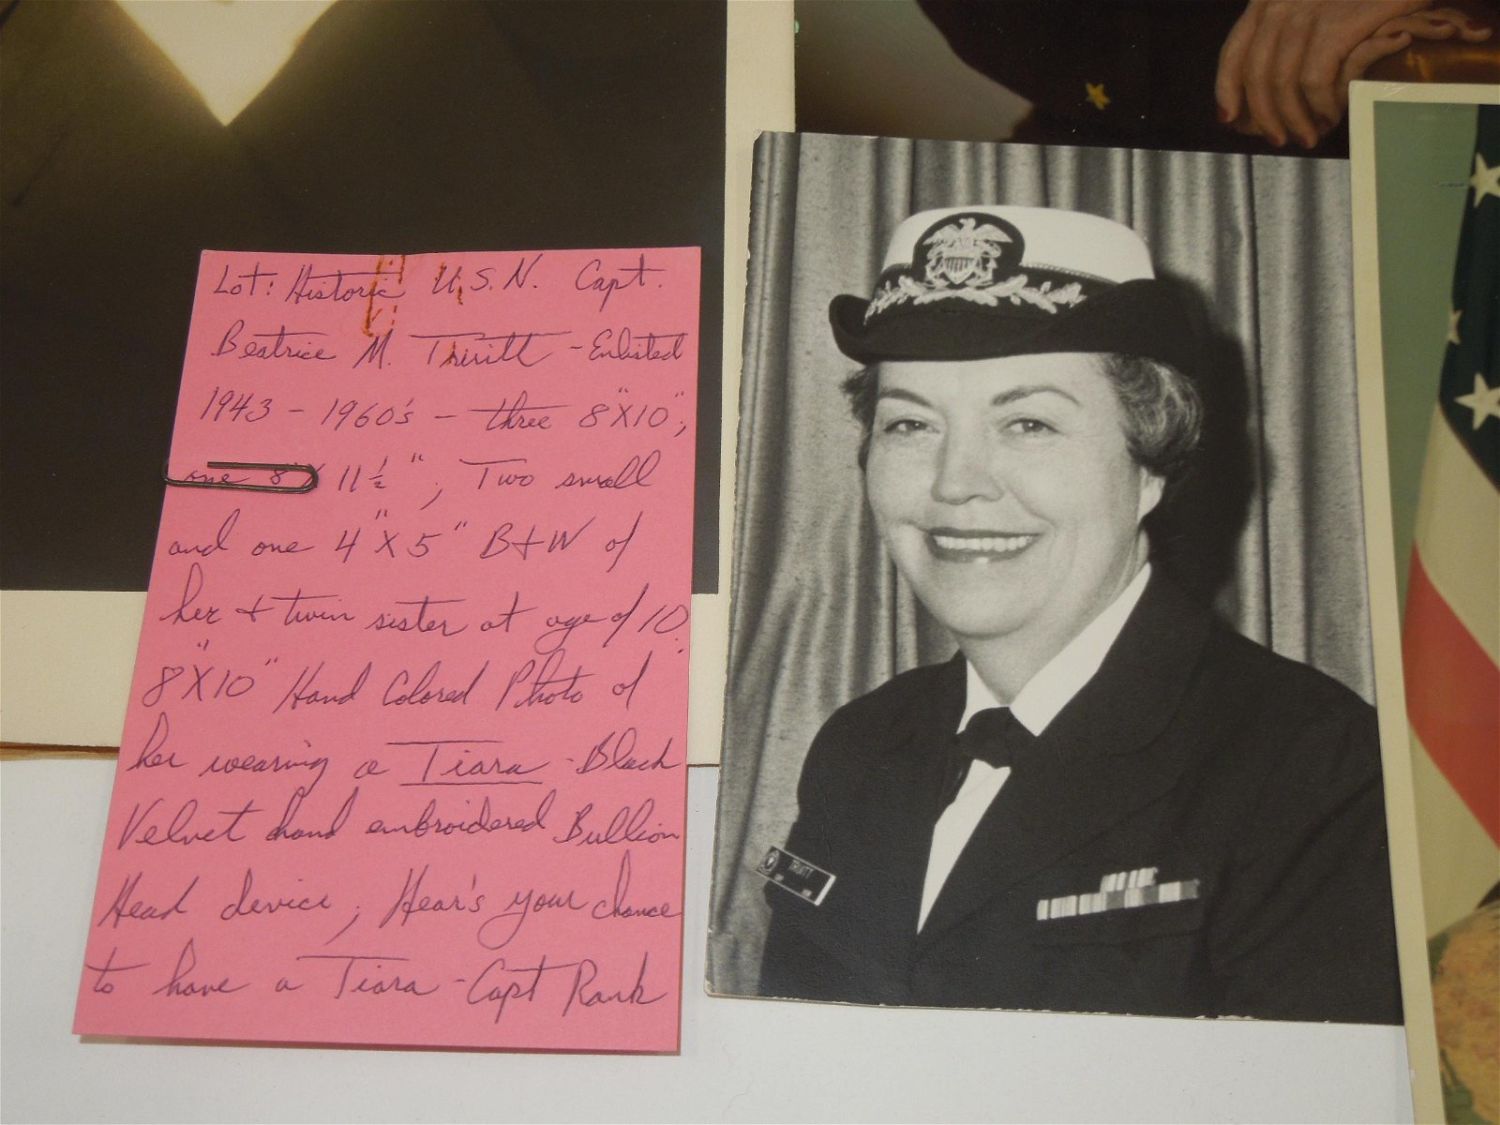 Lot: Historic U.S.N. Capt.
Beatrice M. Truitt - Enlisted
1943 - 1960's - three 8"X10";
one 8"X 11½"; Two small
and one 4"X5" B+W of
her + twin sister at age of 10;
8"X10" Hand Colored Photo of
her wearing a Tiara - Black
Velvet hand embroidered Bullion
Head device; Hear's your chance
to have a Tiara - Capt Rank
TRUITT